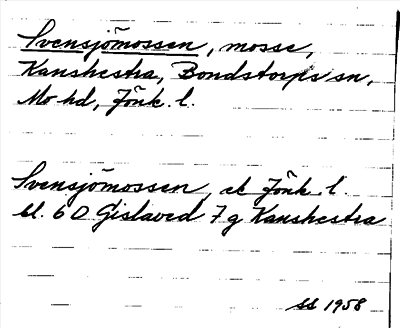 Svensjömossen, mosse,
Kanshestra, Bondstorps sn,
Mo hd, Jönk. l.
Svensjömossen, ek Jönk. l.
bl. 6 D Gislaved 7 g Kanshestra
SS 1958